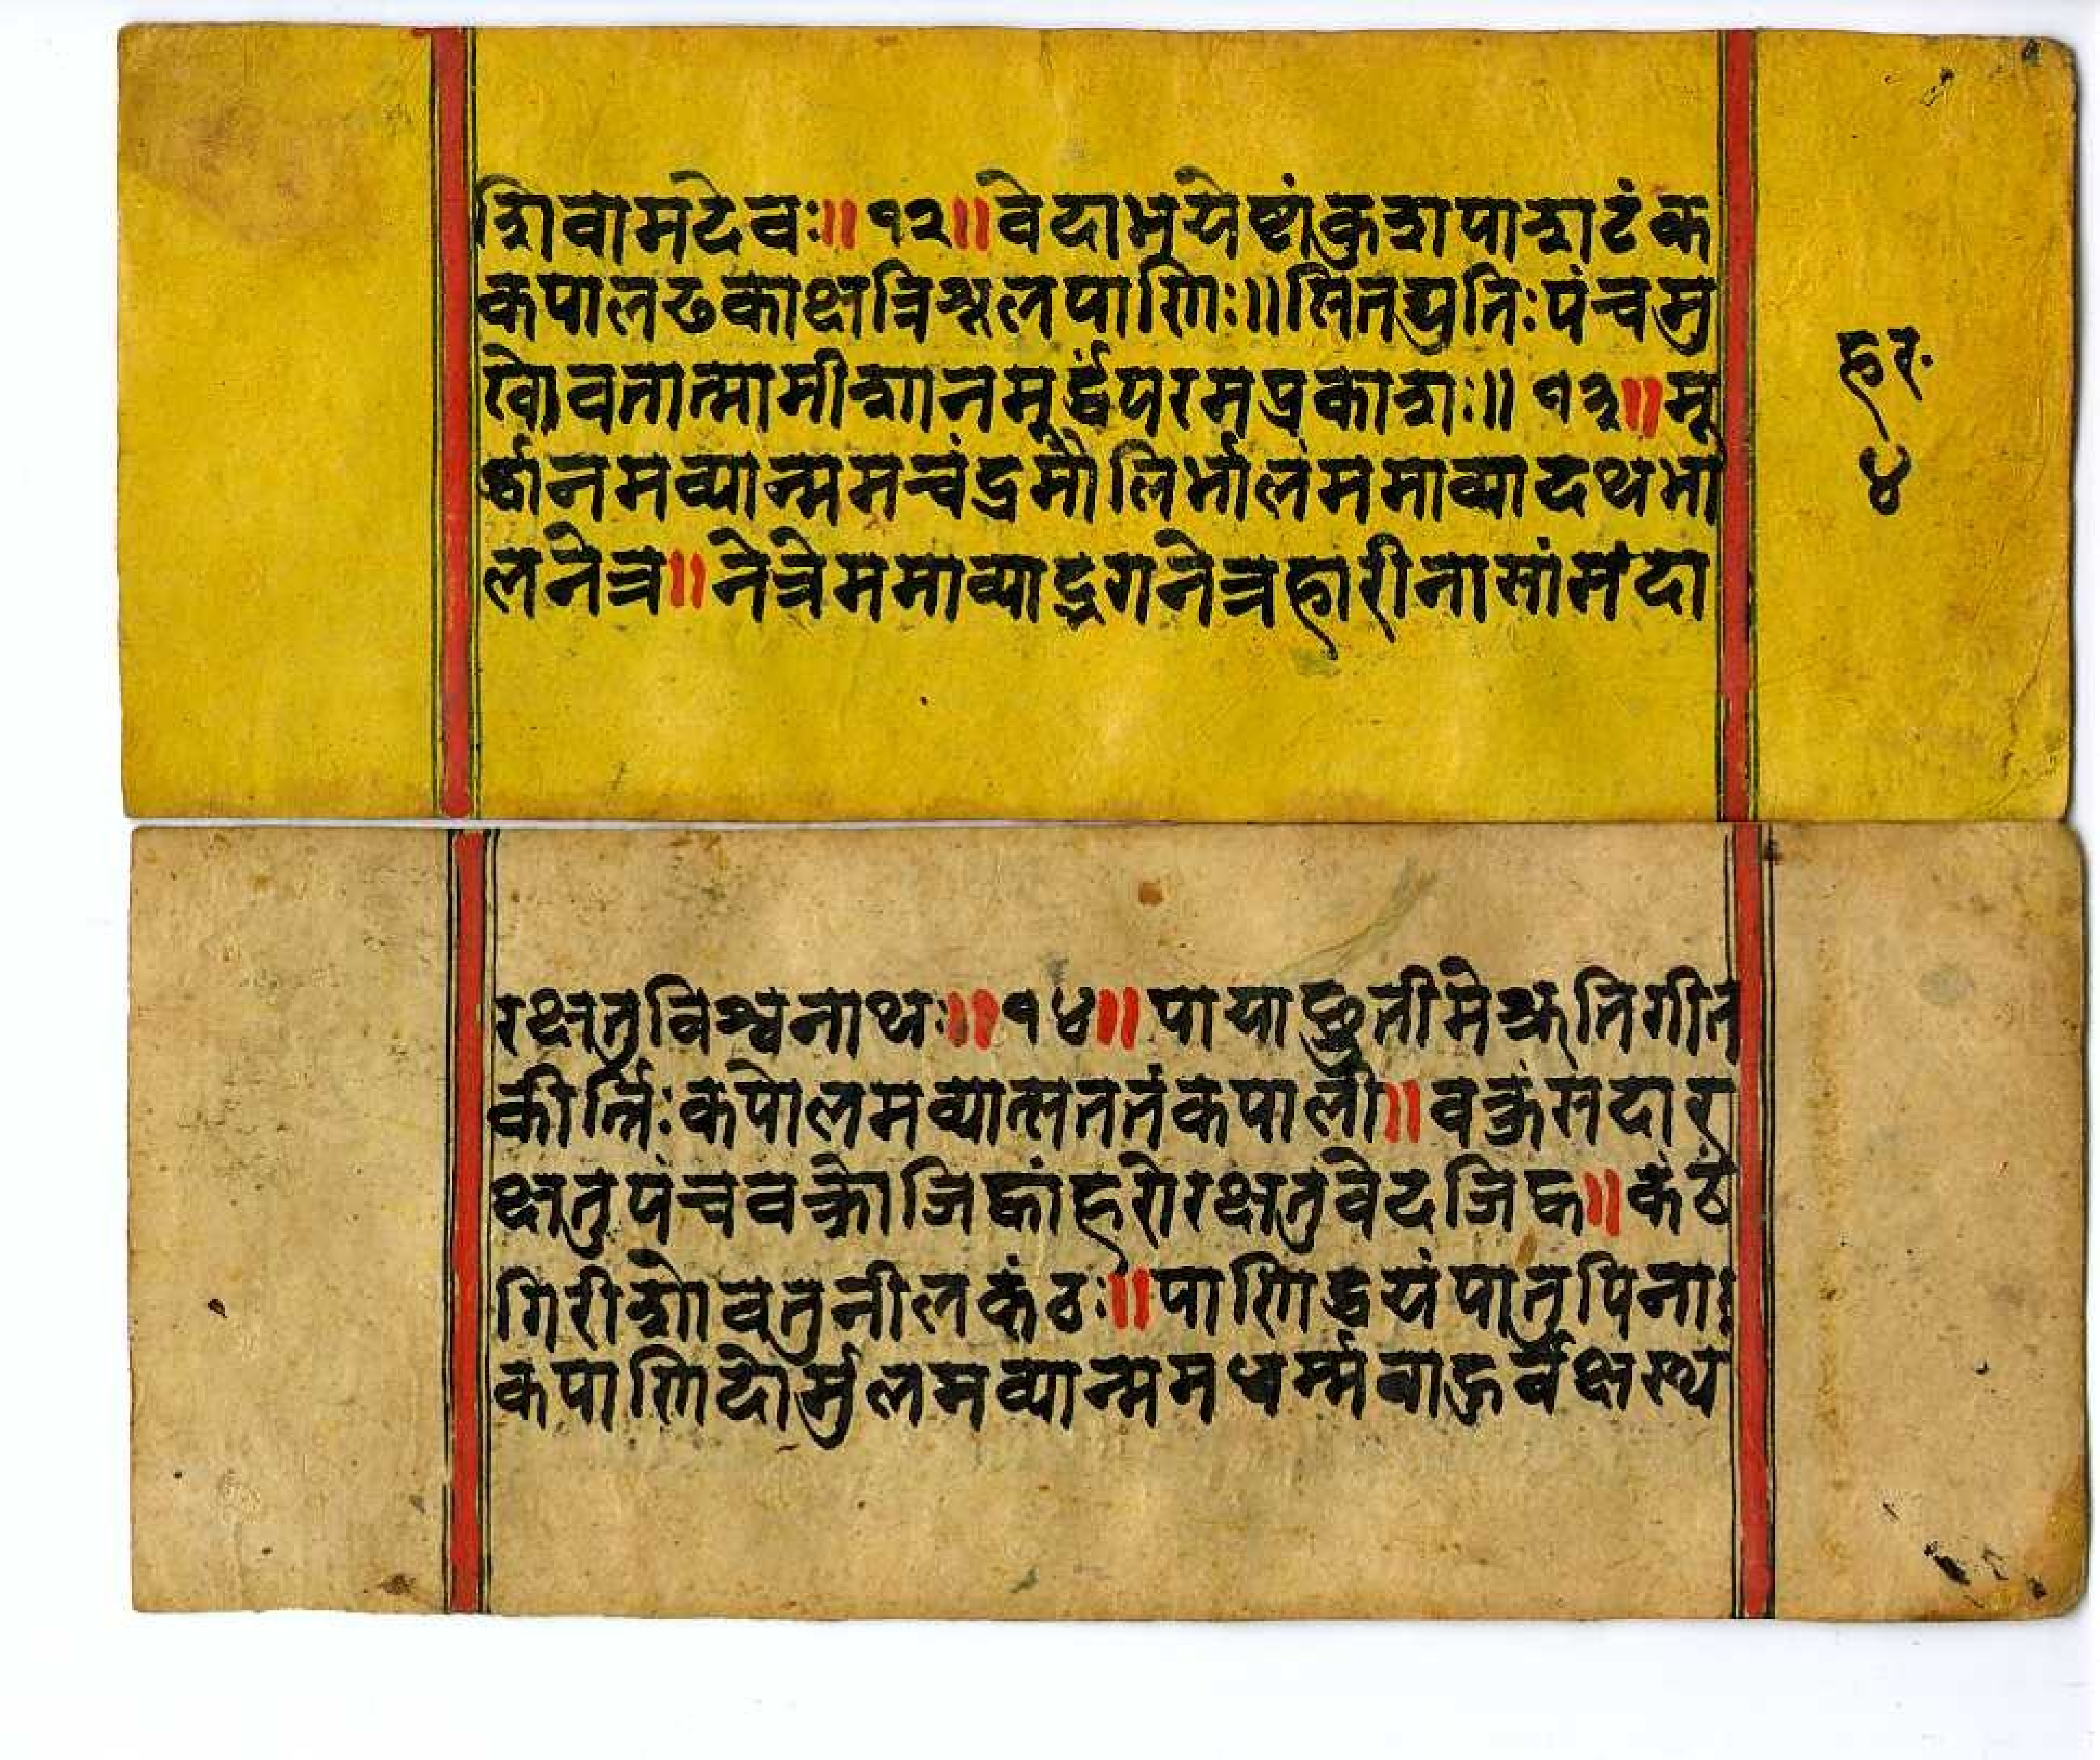 शिवामदेवः॥१२॥वेदाभयेष्टांकुशपाशटंक
कपालढकाक्षत्रिशूलपाणिः॥सितद्युतिःपंचमु
खोवतात्मामीशानमूर्द्धंपरमप्रकाशः॥१३॥मू
र्धानमव्यान्ममचंद्रमौलिर्भालंममाव्यादथभा
लनेत्र॥नेत्रेममाव्याद्भगनेत्रहारीनासांसदा
हर
४
रक्षतुविश्वनाथः॥१४॥पायाछ्रुतीमेश्रुतिगीत
कीर्त्तिःकपोलमव्यात्सततंकपाली॥वक्रंसदार
क्षतुपंचवक्रोजिह्वांहरोरक्षतुवेदजिह्व॥कंठं
गिरीशोवतुनीलकंठः॥पाणिद्वयंपातुपिना
कपाणिदोर्मूलमव्यान्ममधर्म्मबाहुर्वक्षस्थ